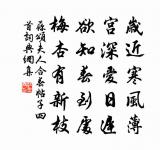 歲近寒風薄
宮深愛日遲
欲知春到處
梅杏有新枝
蘇頌夫人合春帖子四
首詞典網集